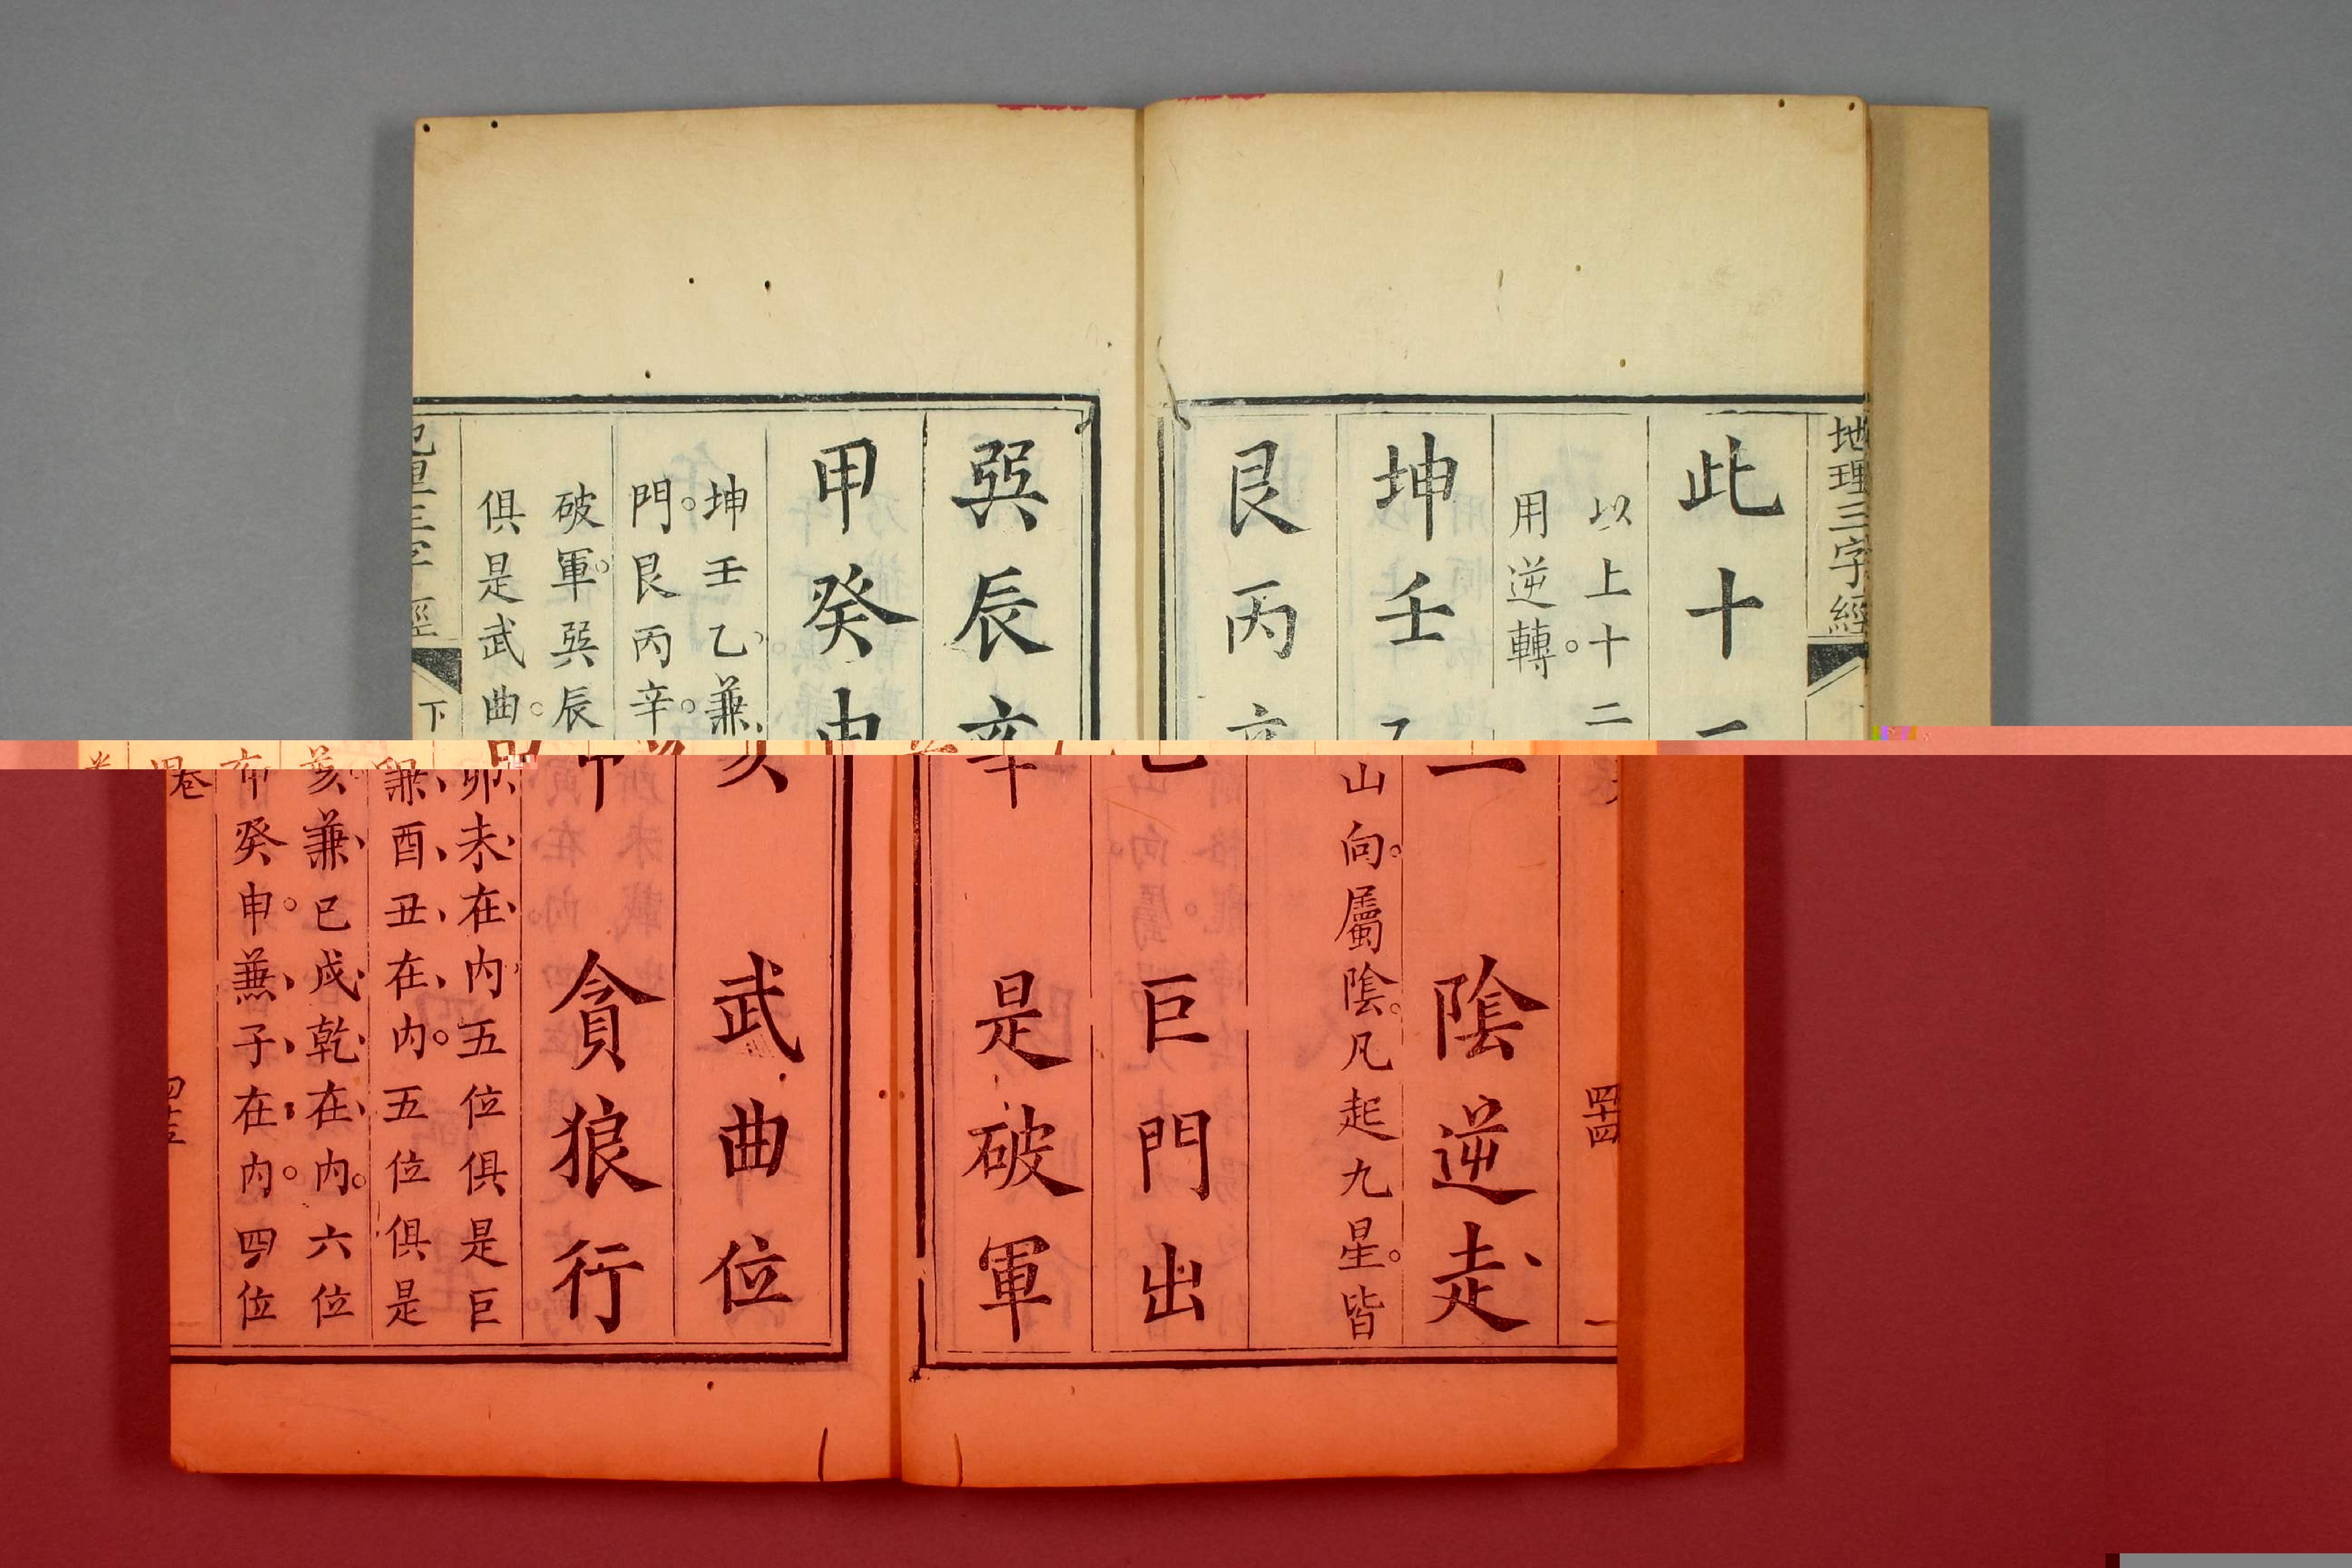 地理三字經
四十四
此十二 陰逆走
以上十二山向。屬陰。凡起九星。皆
用逆轉。
坤壬乙 巨門出
艮丙辛 是破軍
巽辰亥 武曲位
甲癸申 貪狼行
坤壬乙、兼、卯、未、在、內五位俱是巨
門。艮丙辛。兼、酉、丑、在、內。五位俱是
破軍。巽辰亥。兼、巳戌、乾、在、內。六位
俱是武曲。甲癸申。兼、子、在、內。四位
地理三字經
下卷
四十五